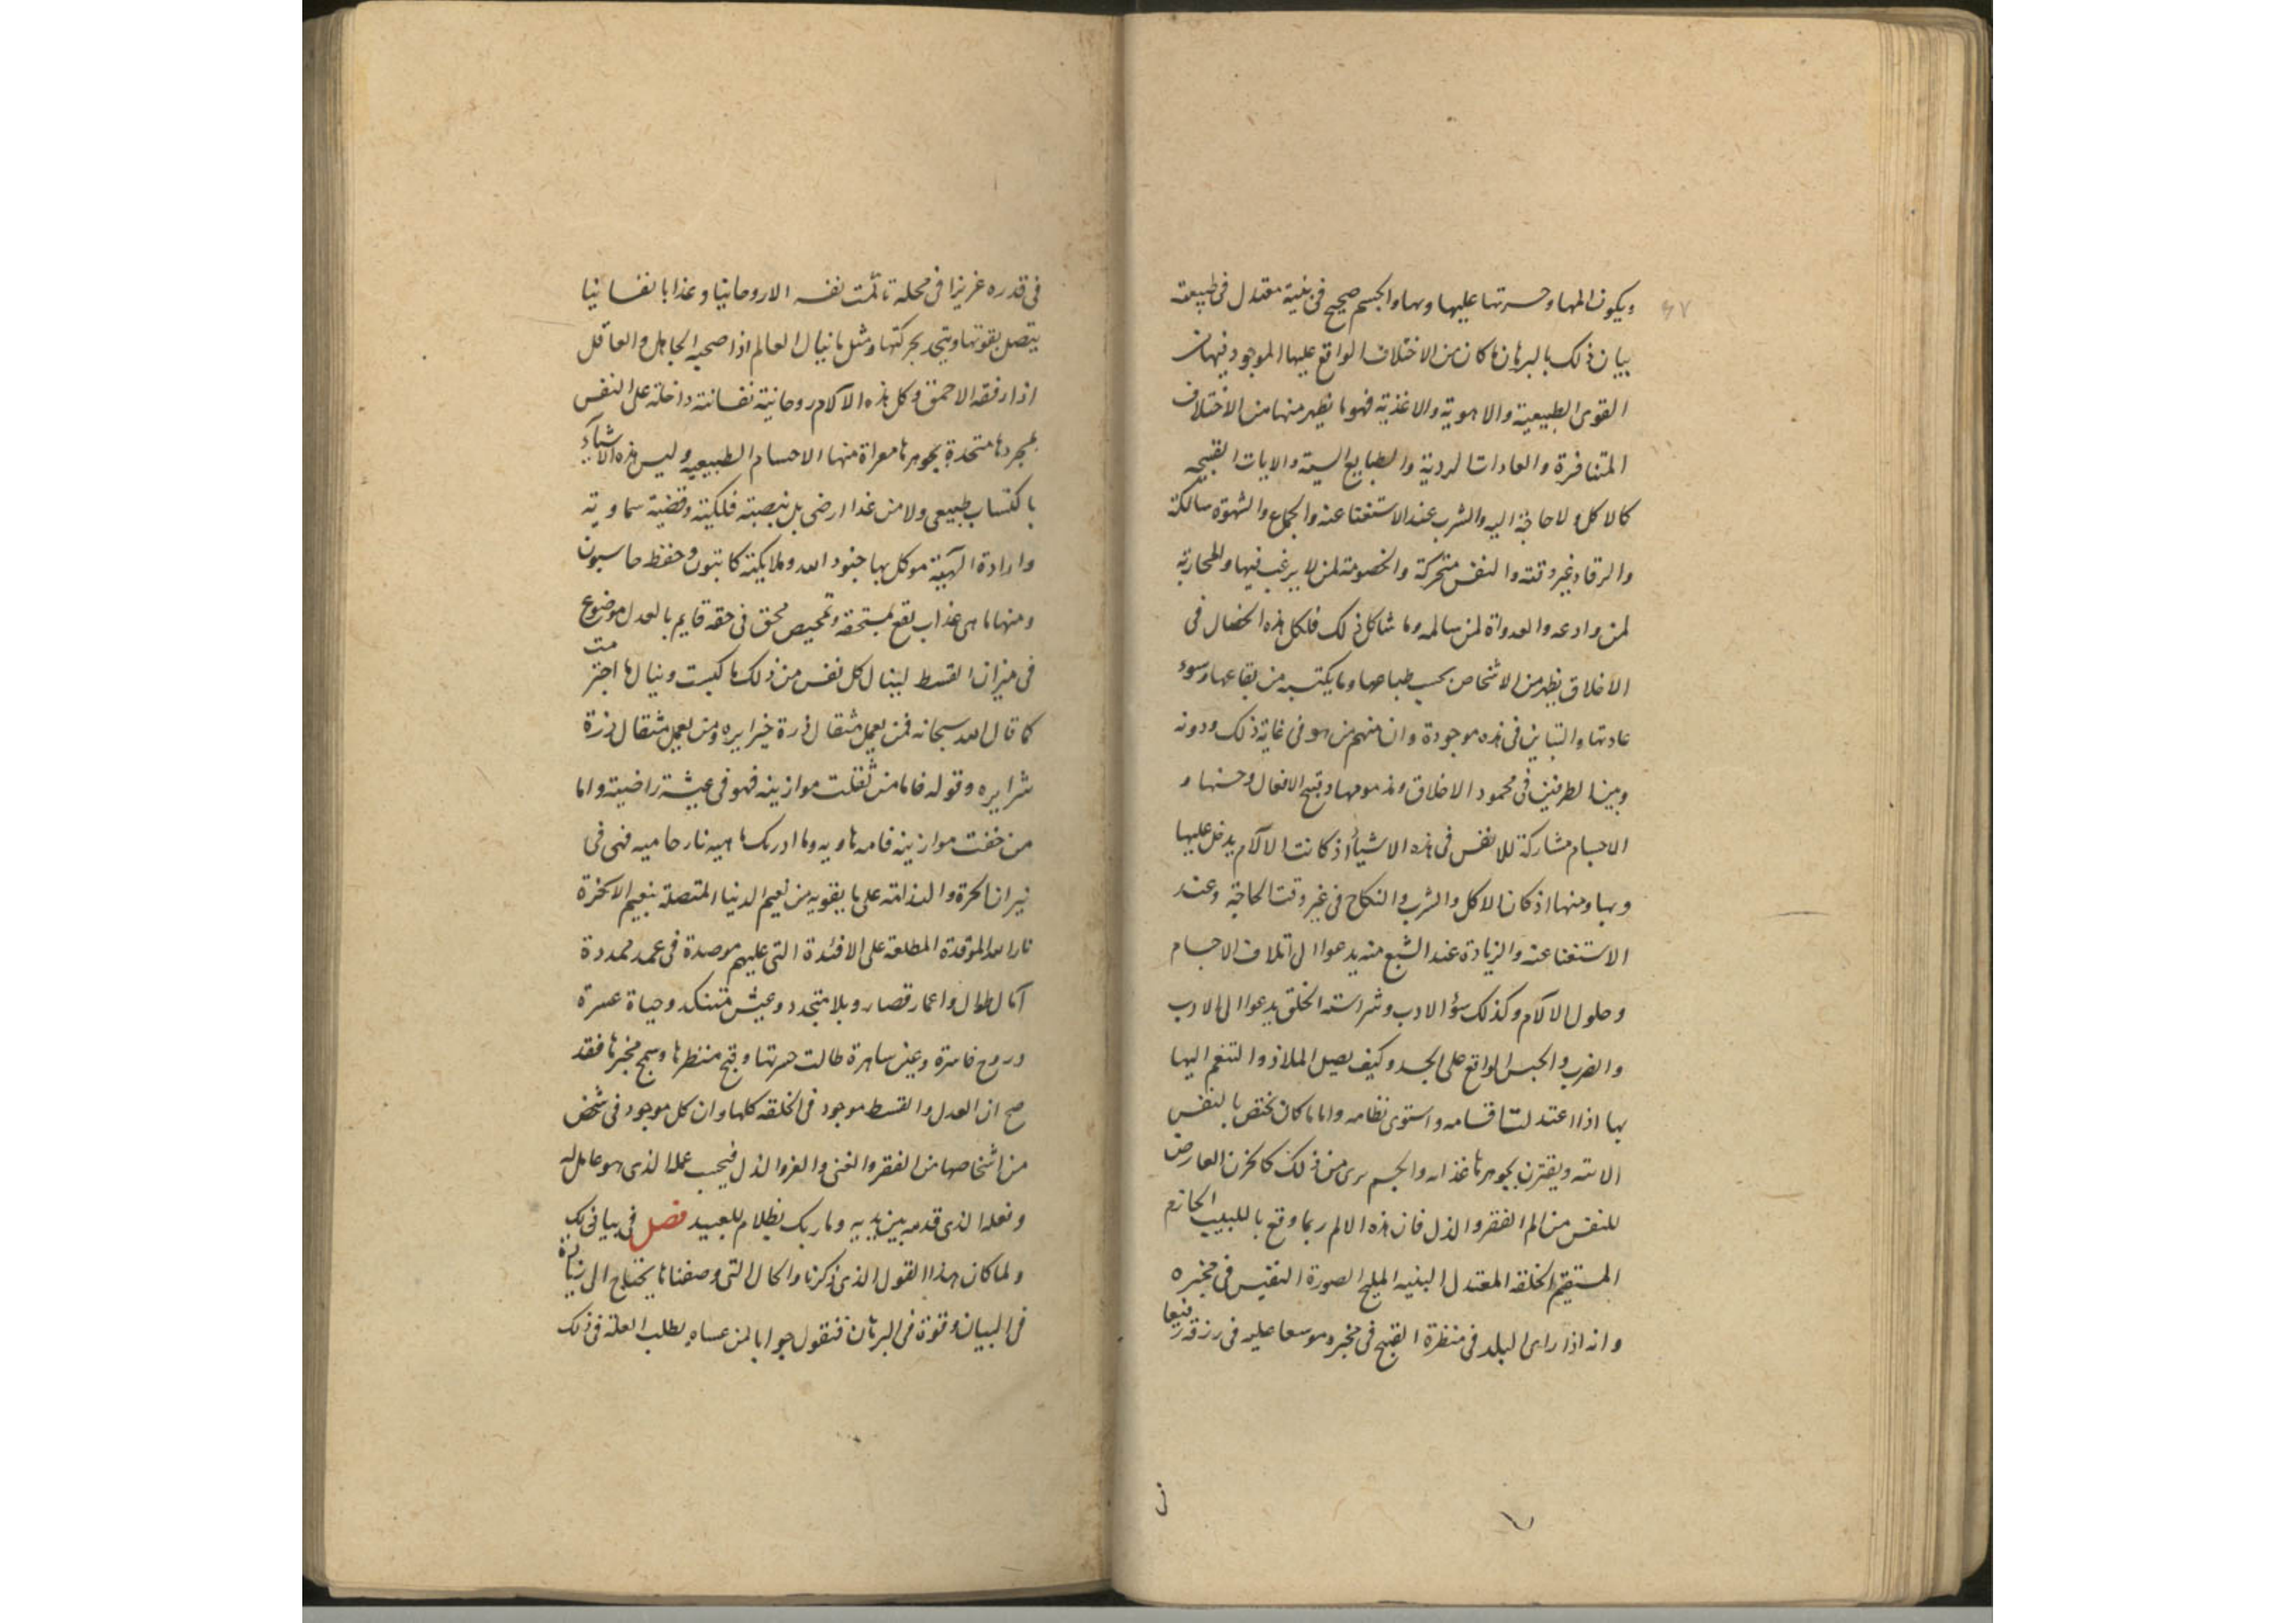 ويكون المها وحسرتها عليها وبها والجسم صحيح في بنية معتدل في طبيعته
بيان ذلك بالبرهان ما كان من الاختلاف الواقع عليها الموجود فيها من
القوى الطبيعية والاهوية والاغذية فهو ما يظهر منها من الاختلاف
المتنافرة والعادات الردية والطبايع السيئة والايات القبيحه
كالاكل ولا حاجة اليه والشرب عند الاستغنا عنه والجماع والشهوة ساكنة
والرقاد غير وقته والنفس متحركة والخصومة لمن لا يرغب فيها والمحاربة
لمن وادعه والعدواة لمن سالمه وما شاكل ذلك فلكل هذه الخصال في
الاخلاق يظهر من الاشخاص بحسب طباعها وما يكتسبه من بقاعها وسوء
عادتها والتباين في هذه موجودة وان منهم من هو في غاية ذلك ودونه
وبين الطرفين في محمود الاخلاق ومذمومها وقبيح الافعال وحسنها و
الاجسام مشاركة للانفس في هذه الاشيأ اذ كانت الآلام يدخل عليها
وبها ومنها اذ كان الاكل والشرب والنكاح في غير وقت الحاجة وعند
الاستغنا عنه والزيادة عند الشبع منه يدعوا الى اتلاف الاجسام
وحلول الآلام وكذلك سؤ الادب وشراسة الخلق يدعوا الى الادب
والضرب والحبس الواقع على الجسد وكيف يصل الملاذ والتنعم اليها
بها اذا اعتدلت اقسامه واستوى نظامه واما ما كان يختص بالنفس
الامه ويقترن بجوهرها عذابه والجسم برى من ذلك كالحزن العارض
للنفس من الم الفقر والذل فان هذه الالم ربما وقع باللبيب الحازم
المستقيم الخلقه المعتدل البنيه المليح الصورة النفيس في مخبره
وانه اذا راى البليد في منظرة القبيح في مخبره موسعا عليه في رزقه رفيعا
في قدره عزيزا في محله تألمت نفسه الاروحانيا وعذابا نفسانيا
يتصل بقوتها ويتحد بحركتها ومثل ما ينال العالم اذا صحبه الجاهل والعاقل
اذا رفقه الاحمق وكل هذه الآلام روحانية نفسانية داخلة على النفس
بمجردها متحدة بجوهرها معراة منها الاجسام الطبيعيه وليس هذه الاشيآء
باكتساب طبيعي ولا من غذا ارضي بل بنصبة فلكية وقضية سماوية
وارادة الهية موكل بها جنود الله وملايكته كاتبون وحفظ حاسبون
ومنها ما هي عذاب يقع لمستحقه وتمحيص محق في حقه قايم بالعدل موضوع
في ميزان القسط لينال كل نفس من ذلك ما كسبت وينالها اجترمت
كما قال الله سبحانه فمن يعمل مثقال ذرة خيرا يره ومن يعمل مثقال ذرة
شرا يره وقوله فاما من ثقلت موازينه فهو في عيشة راضية واما
من خفت موازينه فامه هاويه وما ادريك ما هيه نار حاميه فهي في
نيران الحسرة والندامة على ما يفوته من نعيم الدنيا المتصلة بنعيم الآخرة
نار الله الموقدة المطلعة على الافئدة التي عليهم موصدة في عمد ممددة
آمال طوال واعمار قصار وبلا متجدد وعيش متنكد وحياة عسرة
وروح خاسرة وعين ساهرة طالت حسرتها وقبح منظرها وسمج مخبرها فقد
صح ان العدل والقسط موجود في الخلقه كلها وان كل موجود في شخص
من اشخاصها من الفقر والغنى والعز والذل فبحسب عمله الذي هو عامله
وفعله الذي قدمه بين يديه وما ربك بظلام للعبيد فصل في بيان ذلك
ولما كان هذا القول الذي ذكرنا والحال التي وصفناها يحتاج الى زيادة
في البيان وقوة في البرهان فنقول جوابا لمن عساه يطلب العلة في ذلك